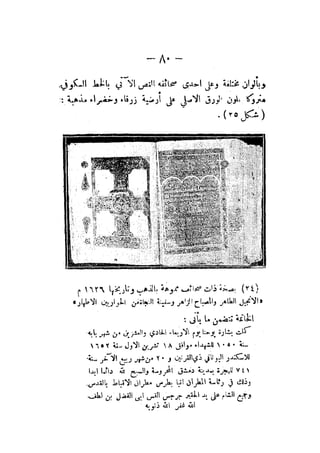 — ٨٠ —
وبألوان مختلفة وعلى احدى صحائفه النص الآتي بالخط الكوفي.
متروكا بلون الورق الاصلي على أرضية زرقاء وخضراء مذهبة :
(شكل ٢٥) .
(٢٤) بصخة ذات صحائف مموهة بالذهب وتاريخها ١٦٢٦ م
«الانجيل الطاهر والمصباح الزاهر وسفينة النجاة من الحواريين الاطهار»
الخاتمة تتضمن ما يأتى :
كملت بشارة يوحنا يوم الاربعاء الحادي والعشرين من شهر بابه
سنة ١٠٥٠ للشهداء موافق ١٨ تشرين الاول سنة ١٦٥٢
للاسكندر اليوناني ذي القرنين و ٢٠ من شهر ربيع الآخر سنة
٧٤١ للهجرة بمدينة دمشق المحروسة والسبح لله دائما ابدا
وذلك في رئاسة المطران انبا بطرس مطران الاقباط بالقدس.
وجميع الشام على يد الحقير جرجس القس ابى الفضل بن لطف.
الله غفر الله ذنوبه